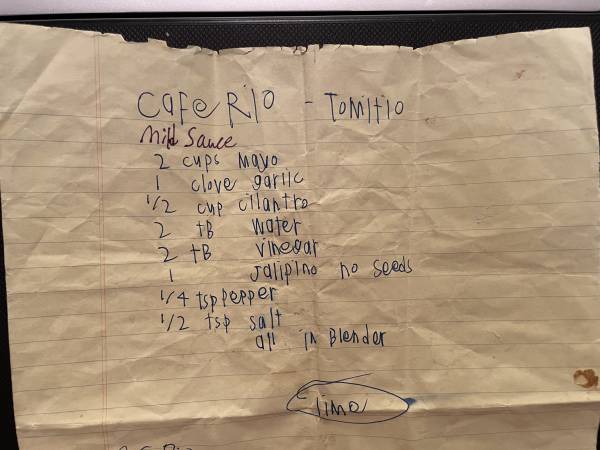 Cafe Rio - Tomitio
Mild Sauce
2 cups mayo
1 clove garlic
1/2 cup cilantro
2 tB water
2 tB vinegar
1 Jalipino no seeds
1/4 tsp pepper
1/2 tsp salt
all in Blender
lime